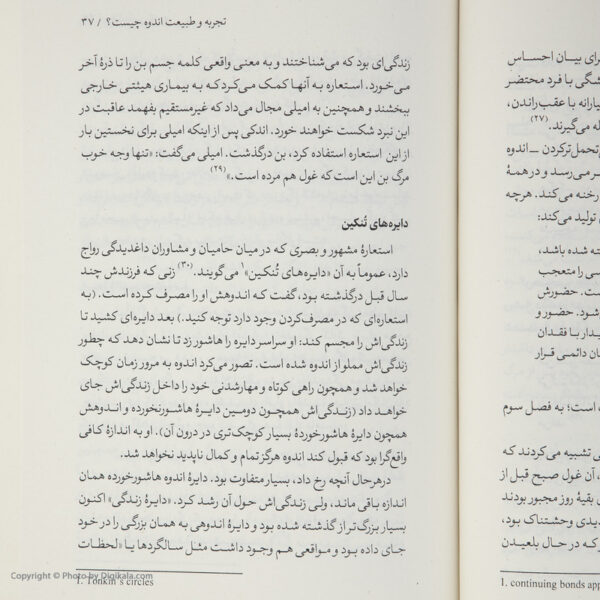 تجربه و طبیعت اندوه چیست؟ / ۳۷
زندگی‌ای بود که می‌شناختند و به معنی واقعی کلمه جسم بن را تا ذرهٔ آخر
می‌خورد. استعاره به آنها کمک می‌کرد که به بیماری هیئتی خارجی
ببخشند و همچنین به امیلی مجال می‌داد که غیرمستقیم بفهمد عاقبت در
این نبرد شکست خواهند خورد. اندکی پس از اینکه امیلی برای نخستین بار
از این استعاره استفاده کرد، بن درگذشت. امیلی می‌گفت: «تنها وجه خوب
مرگ بن این است که غول هم مرده است.»(۲۹)
دایره‌های تُنکین
استعارهٔ مشهور و بصری که در میان حامیان و مشاوران داغدیدگی رواج
دارد، عموماً به آن «دایره‌های تُنکین»۱ می‌گویند.(۳۰) زنی که فرزندش چند
سال قبل درگذشته بود، گفت که اندوهش او را مصرف کرده است. (به
استعاره‌ای که در مصرف‌کردن وجود دارد توجه کنید.) بعد دایره‌ای کشید تا
زندگی‌اش را مجسم کند: او سراسر دایره را هاشور زد تا نشان دهد که چطور
زندگی‌اش مملو از اندوه شده است. تصور می‌کرد اندوه به مرور زمان کوچک
خواهد شد و همچون راهی کوتاه و مهارشدنی خود را داخل زندگی‌اش جای
خواهد داد (زندگی‌اش همچون دومین دایرهٔ هاشورنخورده و اندوهش
همچون دایرهٔ هاشورخوردهٔ بسیار کوچک‌تری در درون آن). او به اندازهٔ کافی
واقع‌گرا بود که قبول کند اندوه هرگز تمام و کمال ناپدید نخواهد شد.
درهرحال آنچه رخ داد، بسیار متفاوت بود. دایرهٔ اندوه هاشورخورده همان
اندازه باقی ماند، ولی زندگی‌اش حول آن رشد کرد. «دایرهٔ زندگی» اکنون
بسیار بزرگ‌تر از گذشته شده بود و دایرهٔ اندوهی به همان بزرگی را در خود
جای داده بود و مواقعی هم وجود داشت مثل سالگردها یا «لحظات
1. Tonkin's circles
رای بیان احساس
شگی با فرد محتضر
یارانه با عقب‌راندن،
له می‌گیرند.(۲۷)
تحمل‌ترکردن ــ اندوه
ر می‌رسد و در همهٔ
رخنه می‌کند. هرچه
تولید می‌کند:
ته شده باشد،
سی را متعجب
ست. حضورش
شود. حضور و
یدار با فقدان
ان دائمی قرار
است؛ به فصل سوم
ی تشبیه می‌کردند که
، آن غول صبح قبل از
بقیهٔ روز مجبور بودند
دیدی وحشتناک بود،
که در حال بلعیدن
1. continuing bonds app
Copyright © Photo by Digikala.com